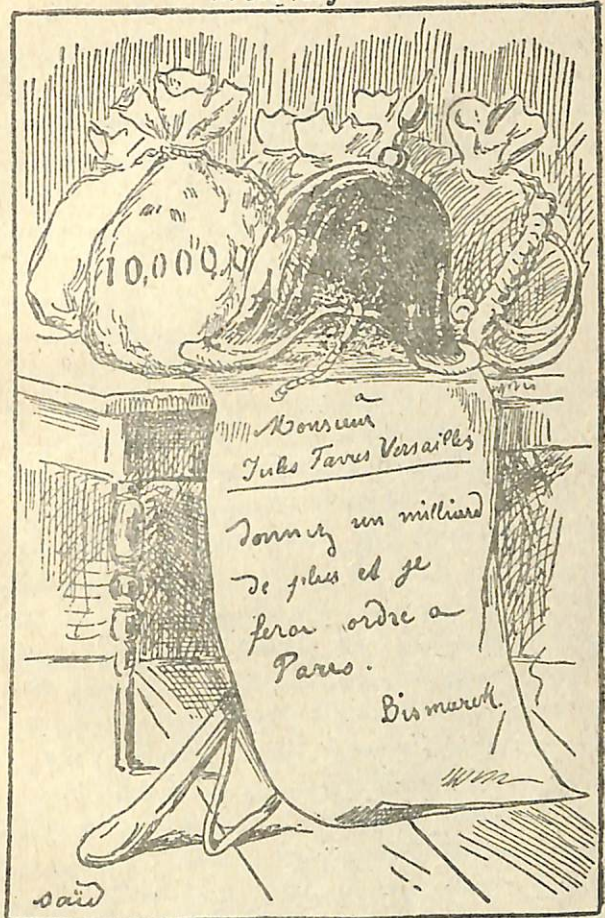 10,000,0
a
Monsieur
Jules Favres Versailles
Donnez un milliard
de plus et je
ferai ordre a
Paris.
Bismarck.
saïd